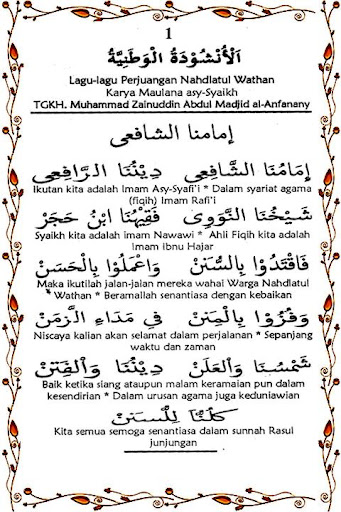 1
اَلْأُنْشُوْدَةُ الْوَطَنِيَّةُ
Lagu-lagu Perjuangan Nahdlatul Wathan
Karya Maulana asy-Syaikh
TGKH. Muhammad Zainuddin Abdul Madjid al-Anfanany
إمامنا الشافعى
إِمَامُنَا الشَّافِعِى دِيْنُنَا الرَّافِعِى
Ikutan kita adalah Imam Asy-Syafi'i * Dalam syariat agama
(fiqih) Imam Rafi'i
شَيْخُنَا النَّوَوِى فَقِيْهُنَا ابْنُ حَجَرْ
Syaikh kita adalah imam Nawawi * Ahli Fiqih kita adalah
Imam ibnu Hajar
فَاقْتَدُوْا بِالسُّنَنْ وَاعْمَلُوْا بِالْحَسَنْ
Maka ikutilah jalan-jalan mereka wahai Warga Nahdlatul
Wathan * Beramallah senantiasa dengan kebaikan
وَفُزُوْا بِالْمِنَنْ فِي مَدَاءِ الزَّمَنْ
Niscaya kalian akan selamat dalam perjalanan * Sepanjang
waktu dan zaman
شَمْسُنَا وَالْعَلَنْ دِيْنُنَا وَالْفِتَنْ
Baik ketika siang ataupun malam keramaian pun dalam
kesendirian * Dalam urusan agama juga keduniawian
كُلُّنَا لِلسُّنَنْ
Kita semua semoga senantiasa dalam sunnah Rasul
junjungan